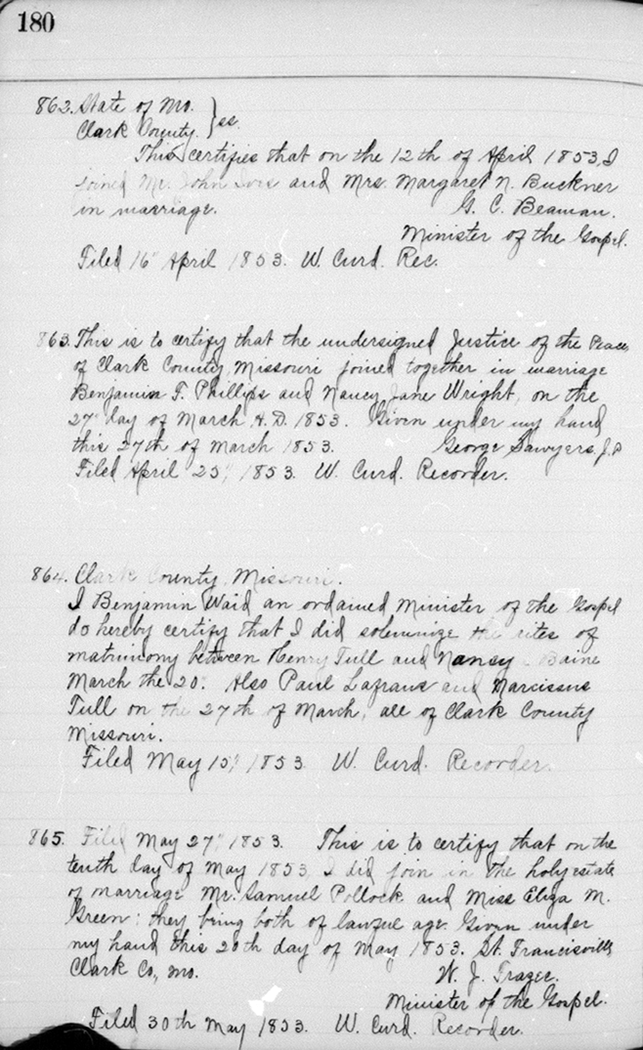 180
862. State of Mo. } ss.
Clark County.
This certifies that on the 12th of April 1853, I
joined Mr. John and Mrs. Margaret N. Buckner
in marriage. G. C. Beaman.
Minister of the Gospel.
Filed 16" April 1853. W. Curd. Rec.
863. This is to certify that the undersigned Justice of the Peace,
of Clark County, Missouri joined together in marriage
Benjamin F. Phillips and Nancy Jane Wright, on the
27" day of March, A.D. 1853. Given under my hand
this 27th of March 1853. George Sawyers, J.P.
Filed April 25", 1853. W. Curd. Recorder.
864. Clark County, Missouri.
I Benjamin Waid an ordained Minister of the Gospel
do hereby certify that I did solemnize the rites of
matrimony between Henry Tull and Nancy Baine
March the 20". Also Paul and Narcissus
Tull on the 27th of March, all of Clark County
Missouri.
Filed May 15", 1853. W. Curd. Recorder.
865. Filed May 27", 1853. This is to certify that on the
tenth day of May 1853, I did join in the holy estate
of marriage Mr. Samuel Pollock and Miss Eliza M.
Green: they being both of lawful age. Given under
my hand this 20th day of May 1853. St. Francisville
Clark Co, Mo. W. J.
Minister of the Gospel.
Filed 30th May 1853. W. Curd. Recorder.